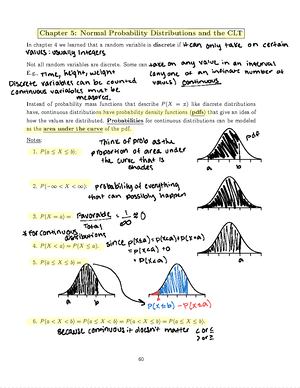 Chapter 5: Normal Probability Distributions and the CLT
In chapter 4 we learned that a random variable is discrete if it can only take on certain
values: usually integers
Not all random variables are discrete. Some can take on any value in an interval
E.g. Time, height, weight (any one of an infinite number of
Discrete variables can be counted values) continuous.
continuous variables must be
measured.
Instead of probability mass functions that describe P(X = x) like discrete distributions
have, continuous distributions have probability density functions (pdfs) that give an idea of
how the values are distributed. Probabilities for continuous distributions can be modeled
as the area under the curve of the pdf.
Notes:
1. P(a ≤ X ≤ b): Think of prob as the
proportion of area under
the curve that is
shaded
pdf
a b
2. P(−∞ < X < ∞): probability of everything
that can possibly happen
3. P(X = a) = Favorable / Total = 1/∞ ≈ 0
*for continuous
distributions
4. P(X < a) = P(X ≤ a). since P(X≤a)=P(X<a)+P(X=a)
=P(X<a)+0
=P(X<a)
a
5. P(a ≤ X ≤ b) =
a b
P(X≤b) − P(X≤a)
6. P(a < X < b) = P(a ≤ X < b) = P(a < X ≤ b) = P(a ≤ X ≤ b).
Because continuous it doesn't matter < or ≤
> or ≥
60